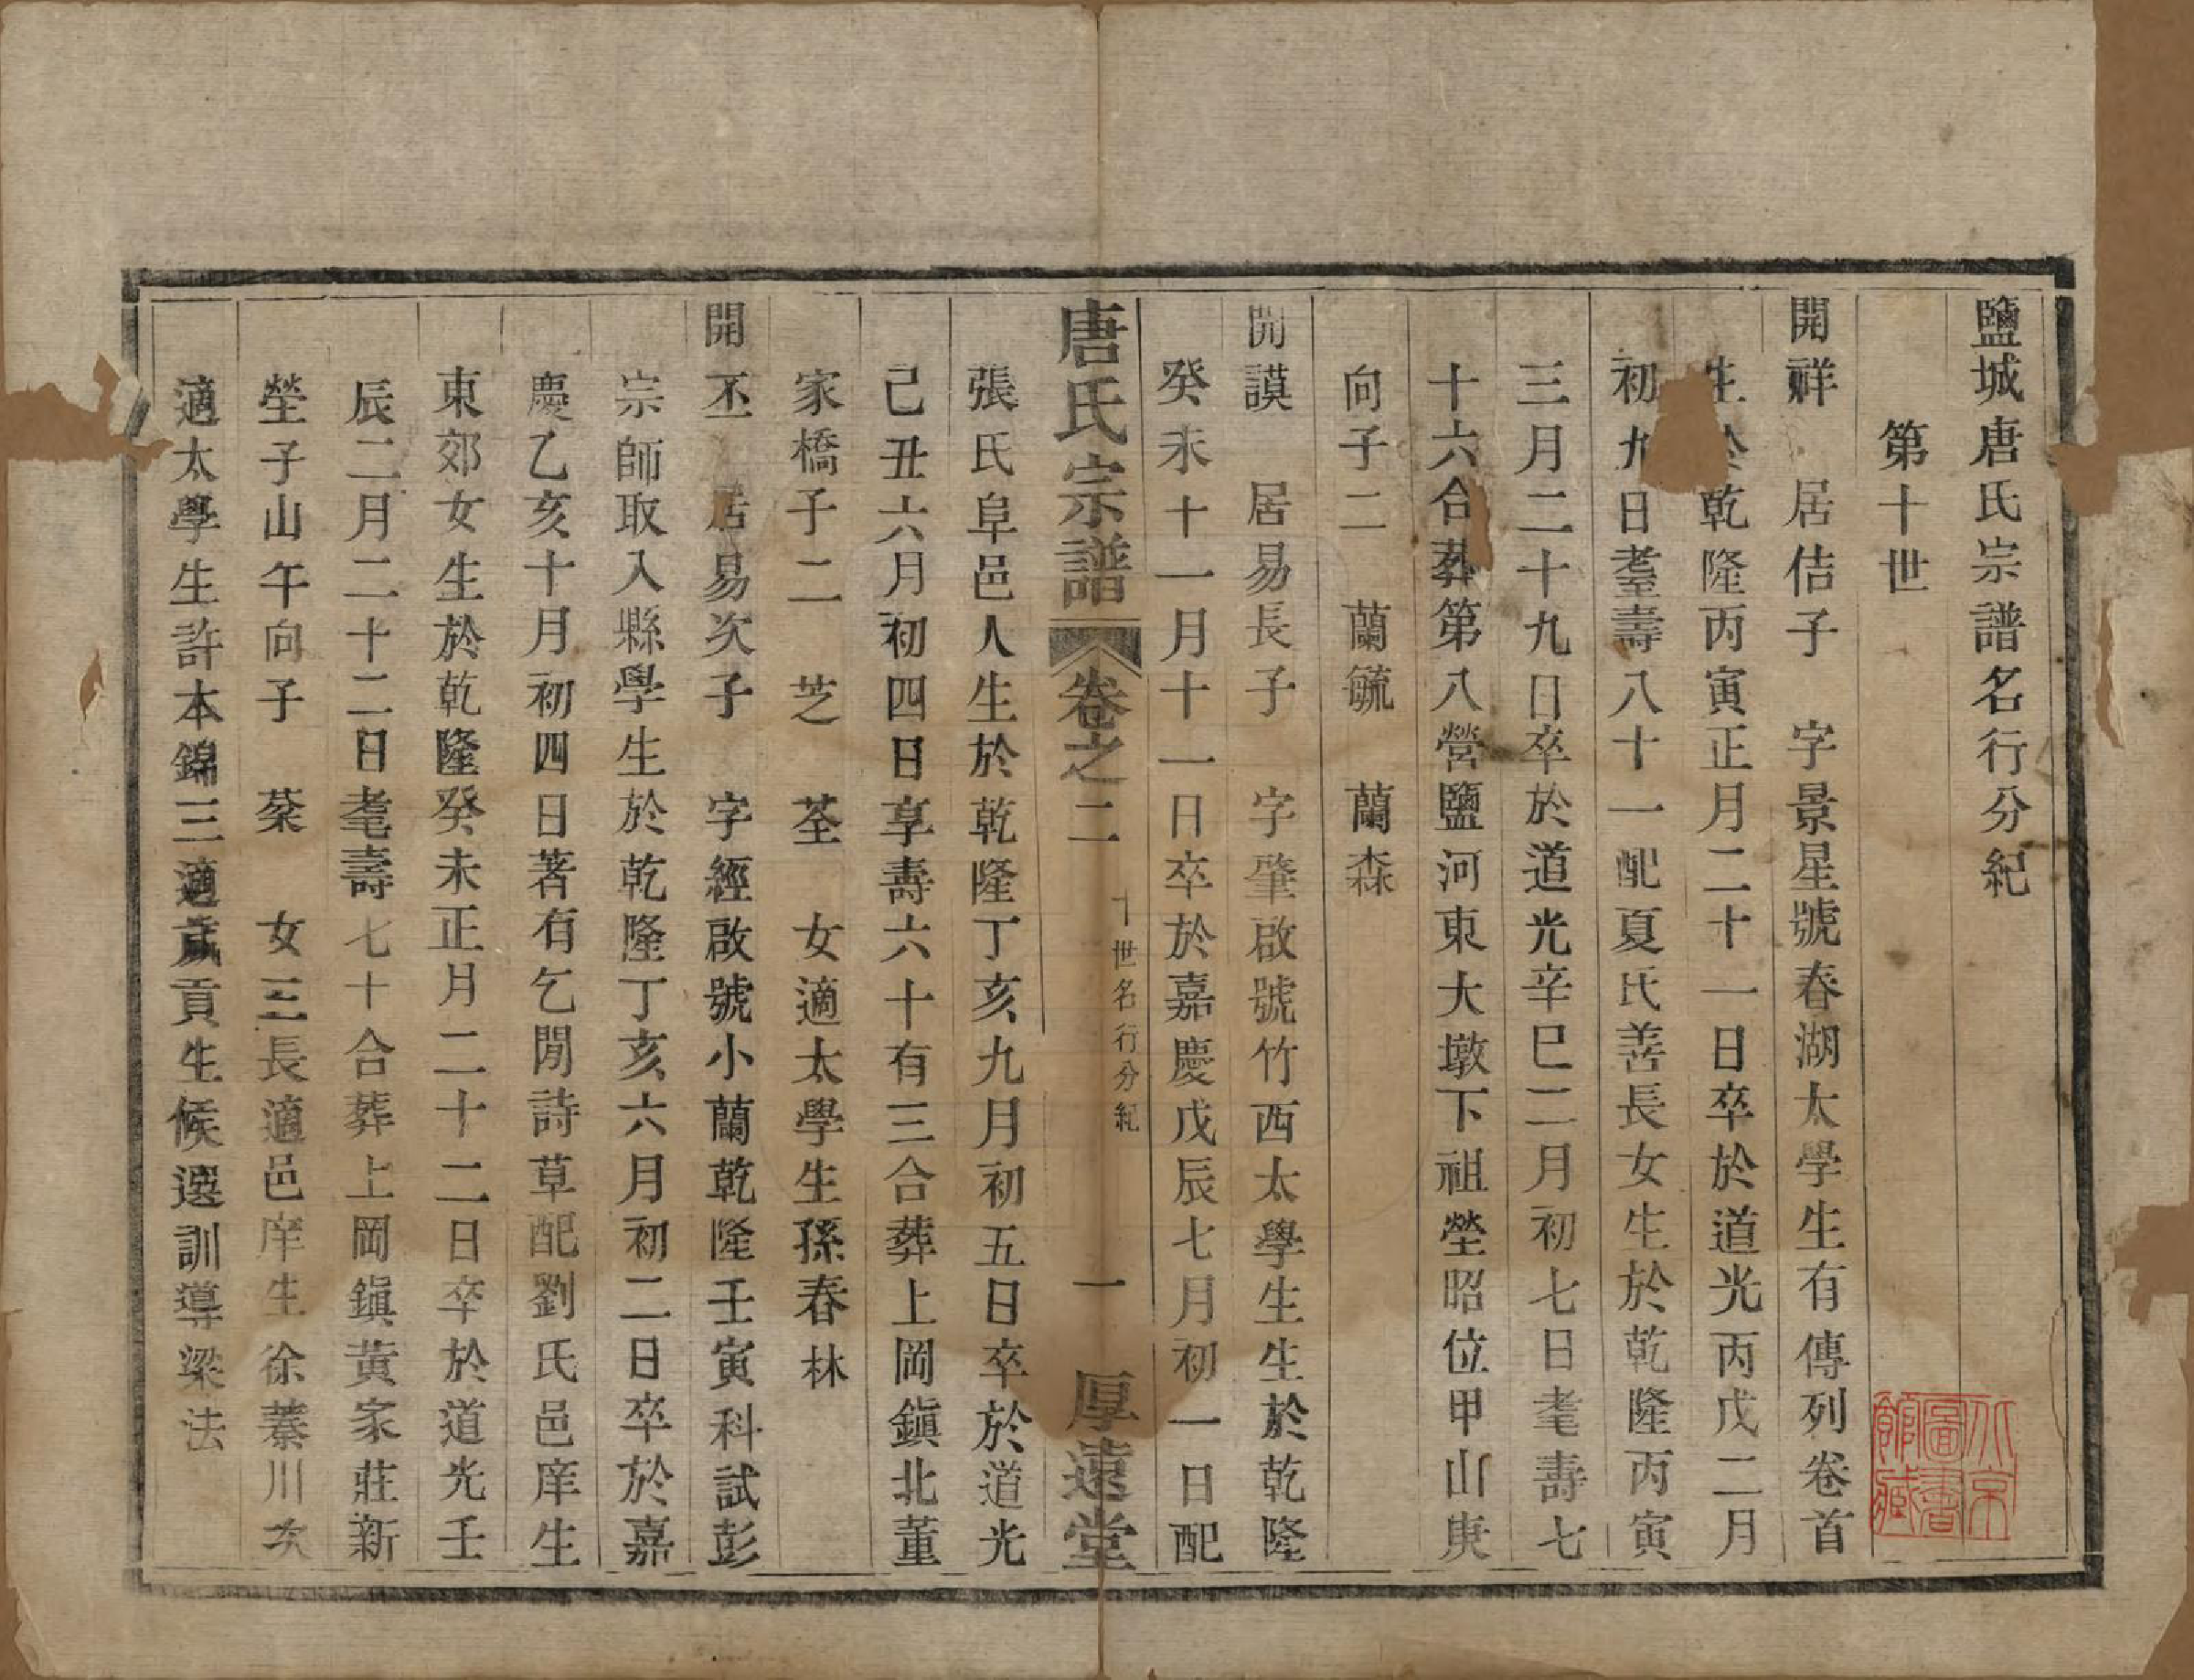 鹽城唐氏宗譜名行分紀
第十世
開祥　居佶子　字景星號春湖太學生有傳列卷首
生於乾隆丙寅正月二十一日卒於道光丙戌二月
初九日耋壽八十一配夏氏善長女生於乾隆丙寅
三月二十九日卒於道光辛巳二月初七日耄壽七
十六合葬第八營鹽河東大墩下祖塋昭位甲山庚
向子二　蘭毓　蘭森
開謨　居易長子　字肇啟號竹西太學生生於乾隆
癸未十一月十一日卒於嘉慶戊辰七月初一日配
唐氏宗譜　卷之二　十世名行分紀　一　厚遠堂
張氏阜邑人生於乾隆丁亥九月初五日卒於道光
己丑六月初四日享壽六十有三合葬上岡鎮北董
家橋子二　芝　荃　女適太學生孫春林
開丕　居易次子　字經啟號小蘭乾隆壬寅科試彭
宗師取入縣學生於乾隆丁亥六月初二日卒於嘉
慶乙亥十月初四日著有乞閒詩草配劉氏邑庠生
東郊女生於乾隆癸未正月二十二日卒於道光壬
辰二月二十二日耄壽七十合葬上岡鎮黄家莊新
塋子山午向子　棻　女三長適邑庠生徐蓁川次
適太學生許本錦三適歲貢生候選訓導梁法
北京圖書館藏